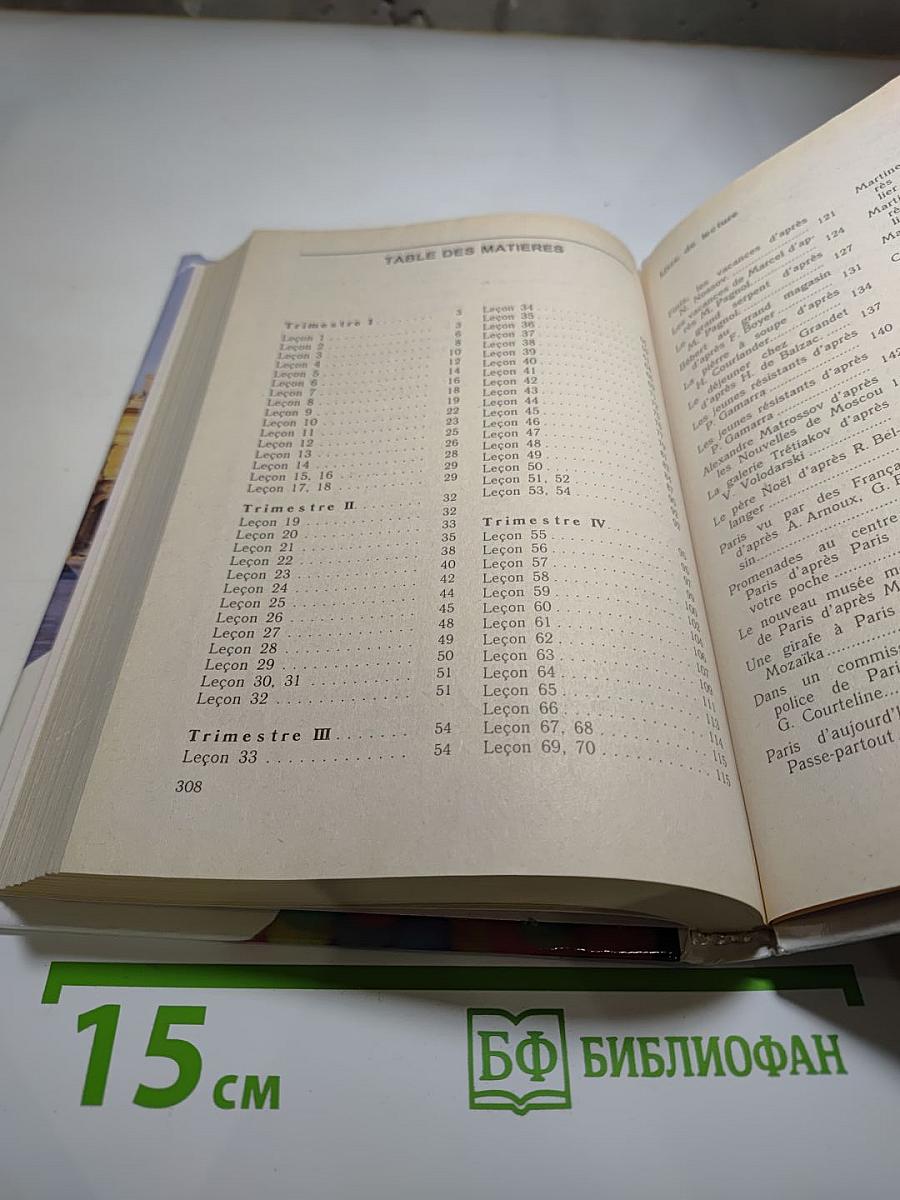 TABLE DES MATIERES
Trimestre I 3
Leçon 1 3
Leçon 2 6
Leçon 3 8
Leçon 4 10
Leçon 5 12
Leçon 6 14
Leçon 7 16
Leçon 8 18
Leçon 9 19
Leçon 10 22
Leçon 11 23
Leçon 12 25
Leçon 13 26
Leçon 14 28
Leçon 15, 16 29
Leçon 17, 18 29
Trimestre II 32
Leçon 19 32
Leçon 20 33
Leçon 21 35
Leçon 22 38
Leçon 23 40
Leçon 24 42
Leçon 25 44
Leçon 26 45
Leçon 27 48
Leçon 28 49
Leçon 29 50
Leçon 30, 31 51
Leçon 32 51
Trimestre III 54
Leçon 33 54
308
Leçon 34
Leçon 35
Leçon 36
Leçon 37
Leçon 38
Leçon 39
Leçon 40
Leçon 41
Leçon 42
Leçon 43
Leçon 44
Leçon 45
Leçon 46
Leçon 47
Leçon 48
Leçon 49
Leçon 50
Leçon 51, 52
Leçon 53, 54
Trimestre IV
Leçon 55
Leçon 56
Leçon 57
Leçon 58
Leçon 59
Leçon 60
Leçon 61
Leçon 62
Leçon 63
Leçon 64
Leçon 65
Leçon 66
Leçon 67, 68
Leçon 69, 70
de lecture
les vacances d'après
N. Nossov 121
Les vacances de Marcel d'ap-
rès M. Pagnol 124
Le grand serpent d'après
M. Pagnol 127
Bébert au grand magasin
d'après F. Boyer 131
La pierre à soupe d'après
H. Courlander 134
Le déjeuner chez Grandet
d'après H. de Balzac 137
Les jeunes résistants d'après
P. Gamarra 140
Les jeunes résistants d'après
P. Gamarra 142
Alexandre Matrossov d'après
les Nouvelles de Moscou
La galerie Trétiakov d'après
V. Volodarski
Le père Noël d'après R. Bel-
langer
Paris vu par des França
d'après A. Arnoux, G.
sin
Promenades au centre
Paris d'après Paris
votre poche
Le nouveau musée
de Paris d'après M
Une girafe à Paris
Mozaïka
Dans un commiss
police de Pari
G. Courteline
Paris d'aujourd'
Passe-partout
Martine
rès
lier
Marti
15 см
БФ БИБЛИОФАН